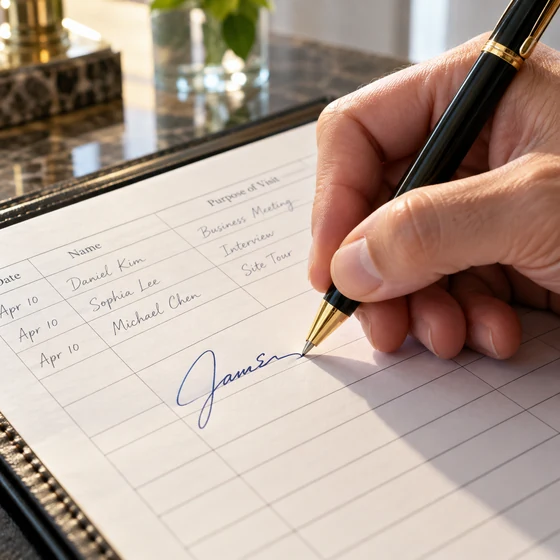 Date Name Purpose of Visit
Apr 10 Daniel Kim Business Meeting
Apr 10 Sophia Lee Interview
Apr 10 Michael Chen Site Tour
James